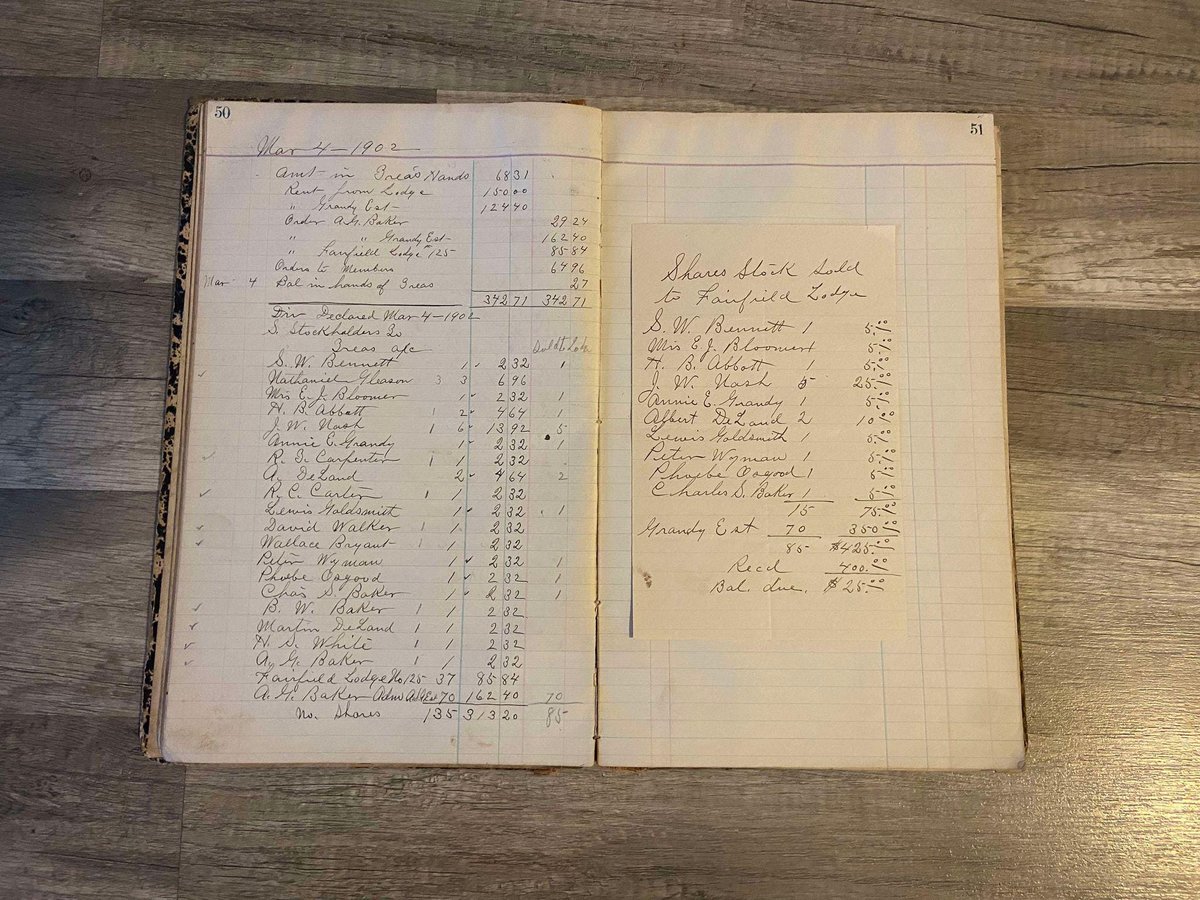 50
Mar 4 - 1902
Amt in Treas Hands 68 31
Rent from Lodge 150 00
" Grandy Est 124 40
Order A.G. Baker 29 24
" " Grandy Est 162 40
" Fairfield Lodge 125 85 84
Orders to Members 64 96
Mar 4 Bal in hands of Treas 27
342 71 342 71
Div Declared Mar 4 - 1902
Stockholders
Treas a/c Sold to Lodge
S. W. Bennett 1 2 32 1
Nathaniel Gleason 3 3 6 96
Mrs E. J. Bloomer 1 2 32 1
H. B. Abbott 1 2 4 64 1
J. W. Nash 1 6 13 92 5
Annie E. Grandy 1 2 32 1
Carpenter 1 1 2 32
A. DeLand 2 4 64 2
R. C. Carter 1 1 2 32
Lewis Goldsmith 1 2 32 1
David Walker 1 1 2 32
Wallace Bryant 1 1 2 32
Peter Wyman 1 2 32 1
Phoebe Osgood 1 2 32 1
Chas S. Baker 1 2 32 1
B. W. Baker 1 1 2 32
Martin DeLand 1 1 2 32
H. S. White 1 1 2 32
A. G. Baker 1 1 2 32
Fairfield Lodge No 125 37 85 84
A. G. Baker Adm 70 162 40 70
No. Shares 135 313 20 85
51
Shares Stock Sold
to Fairfield Lodge
S. W. Bennett 1 5.
Mrs E. J. Bloomer 1 5.
H. B. Abbott 1 5.
J. W. Nash 5 25.
Annie E. Grandy 1 5.
Albert DeLand 2 10
Lewis Goldsmith 1 5.
Peter Wyman 1 5.
Phoebe Osgood 1 5.
Charles S. Baker 1 5
15 75.
Grandy Est 70 350
85 $425.
Recd 400.
Bal. due. $25.